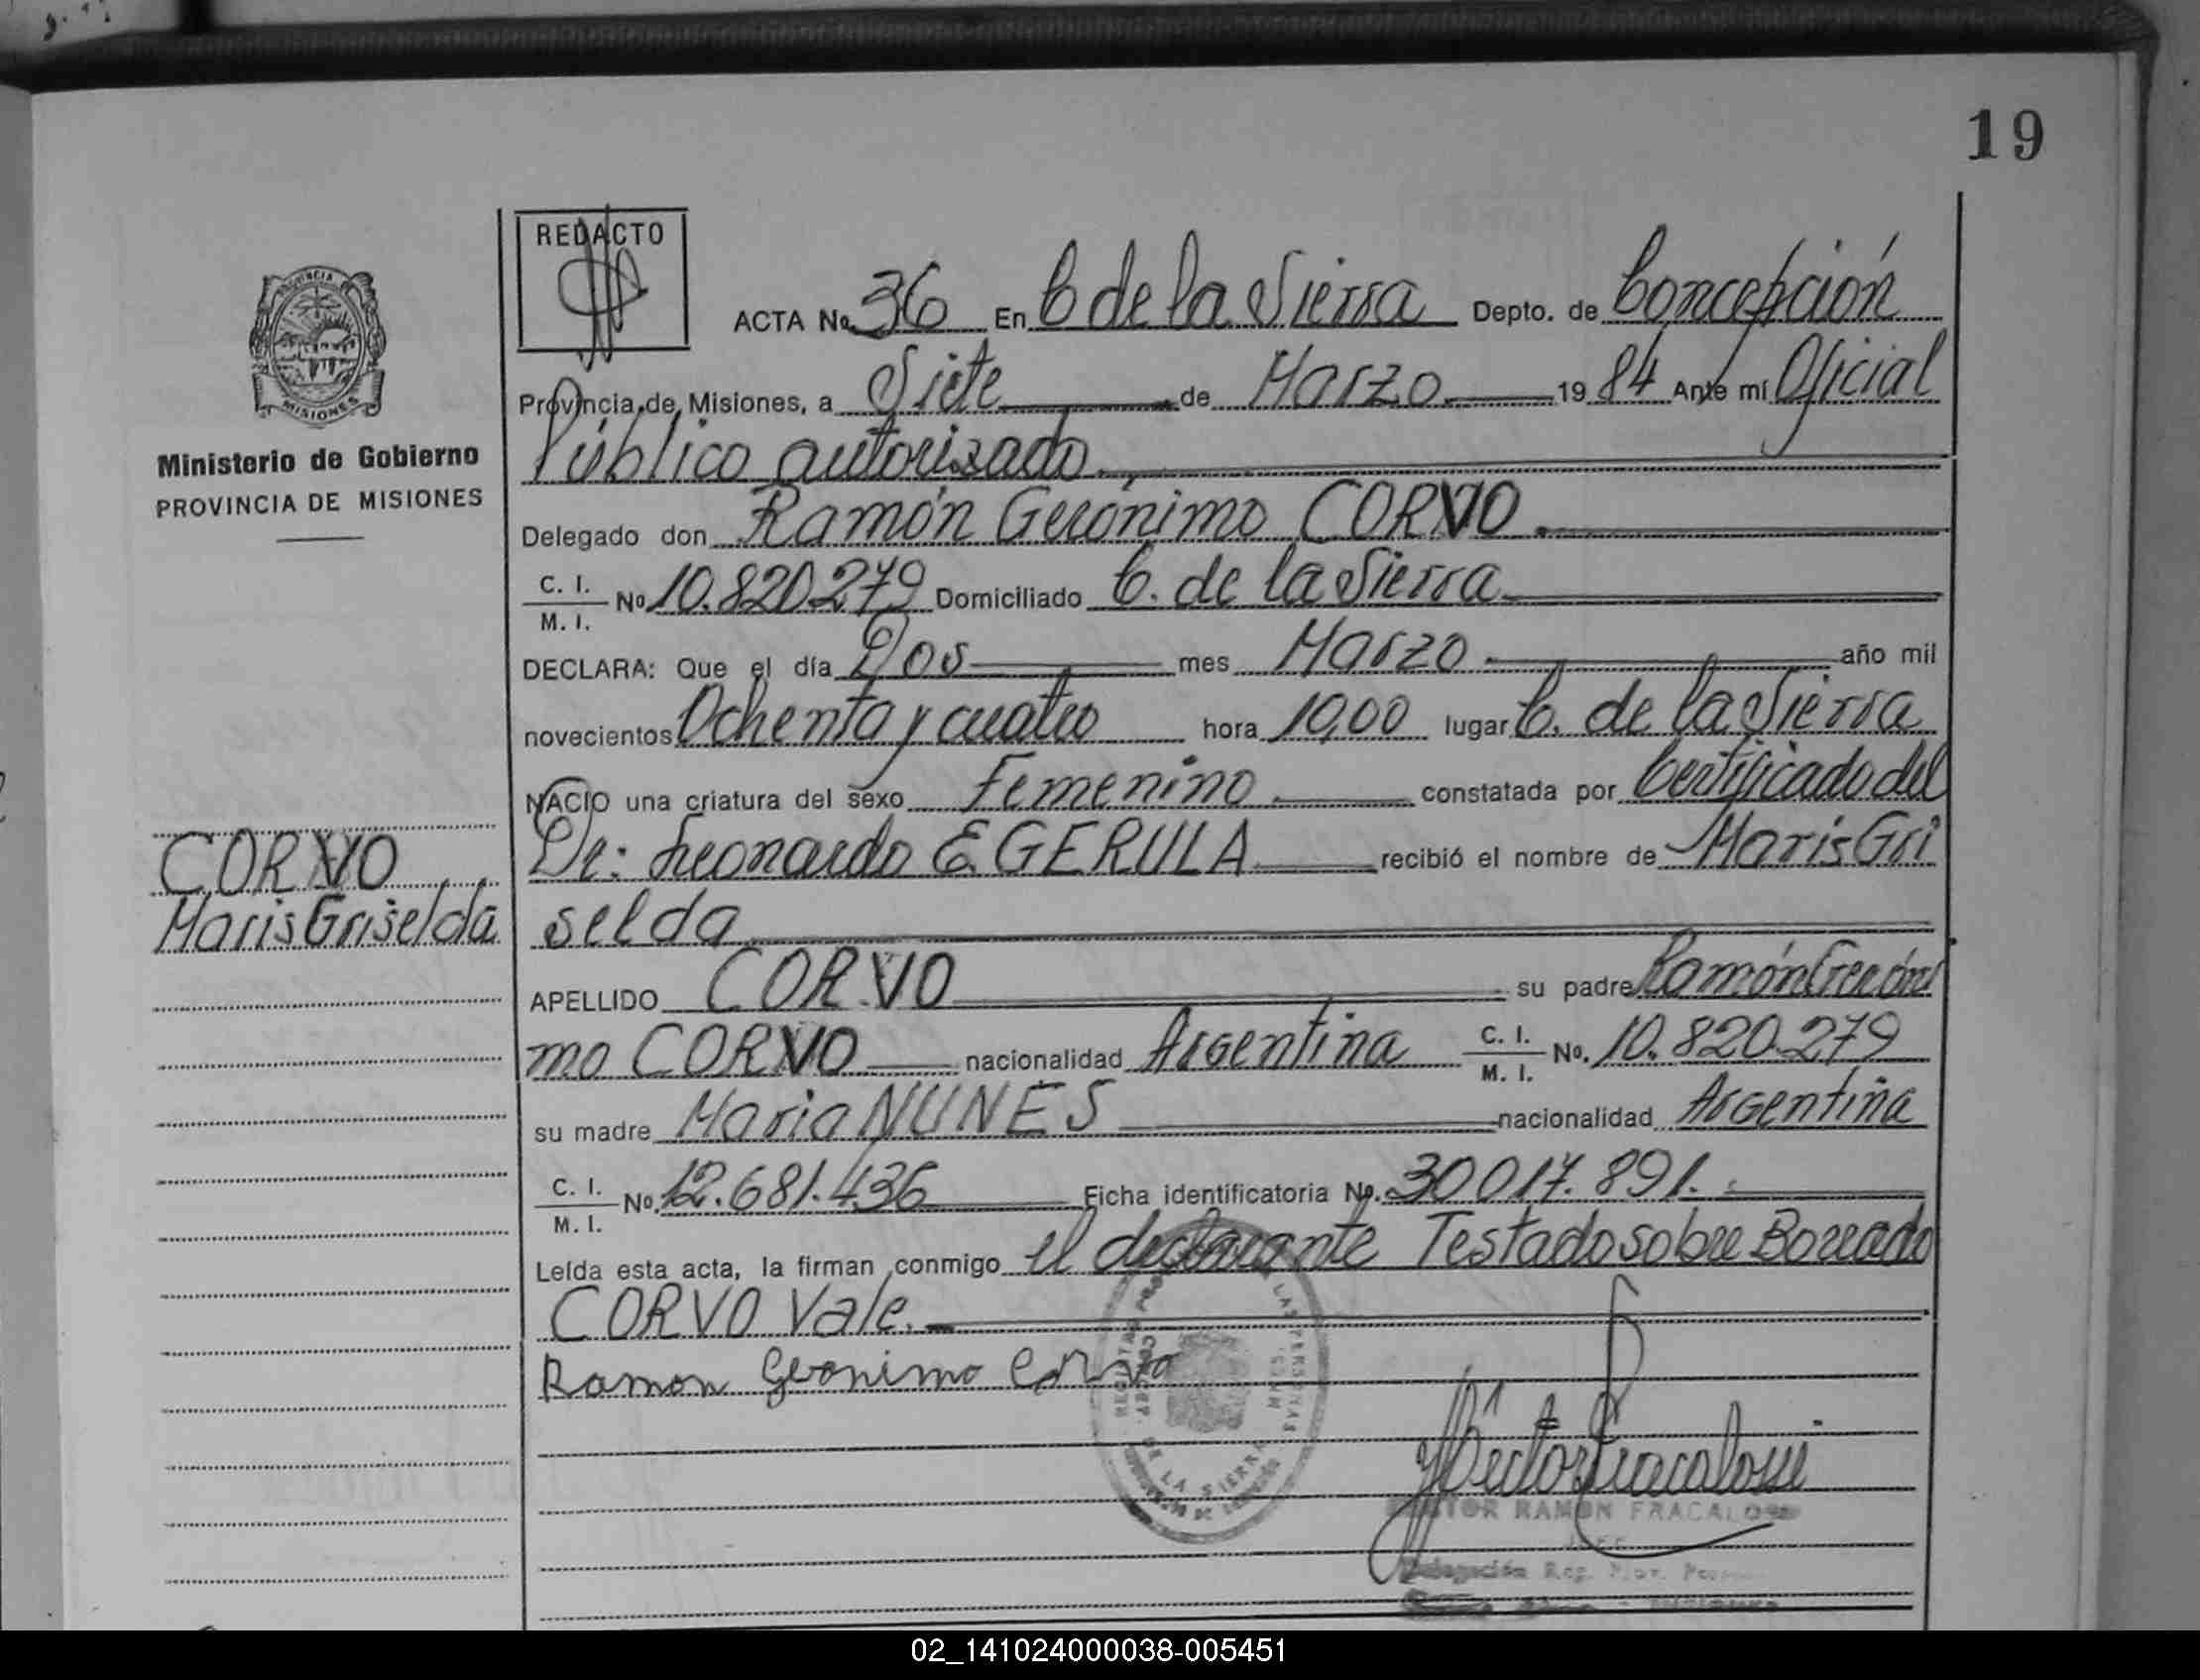 19
REDACTO
ACTA No. 36 En C de la Sierra Depto. de Concepción
Provincia de Misiones, a Siete de Marzo 1984 Ante mí Oficial
Público autorizado
Delegado don Ramón Gerónimo CORVO
C. I. / M. I. No 10.820.279 Domiciliado C. de la Sierra
DECLARA: Que el día Dos mes Marzo año mil
novecientos Ochenta y cuatro hora 10,00 lugar C. de la Sierra
NACIO una criatura del sexo Femenino constatada por Certificado del
Dr: Leonardo E. GERULA recibió el nombre de Maris Gri
selda
APELLIDO CORVO su padre Ramón Geróni
mo CORVO nacionalidad Argentina C. I. / M. I. No. 10.820.279
su madre Maria NUNES nacionalidad Argentina
C. I. / M. I. No. 12.681.436 Ficha identificatoria No. 30017.891.
Leída esta acta, la firman conmigo el declarante Testado sobre Borrado
CORVO Vale.
Ramon Geronimo Corvo
PROVINCIA
MISIONES
Ministerio de Gobierno
PROVINCIA DE MISIONES
CORVO
Maris Griselda
DE LA SIERRA
Hector Fracalossi
RAMON FRACALOSSI
Delegación Reg. Prov.
02_141024000038-005451